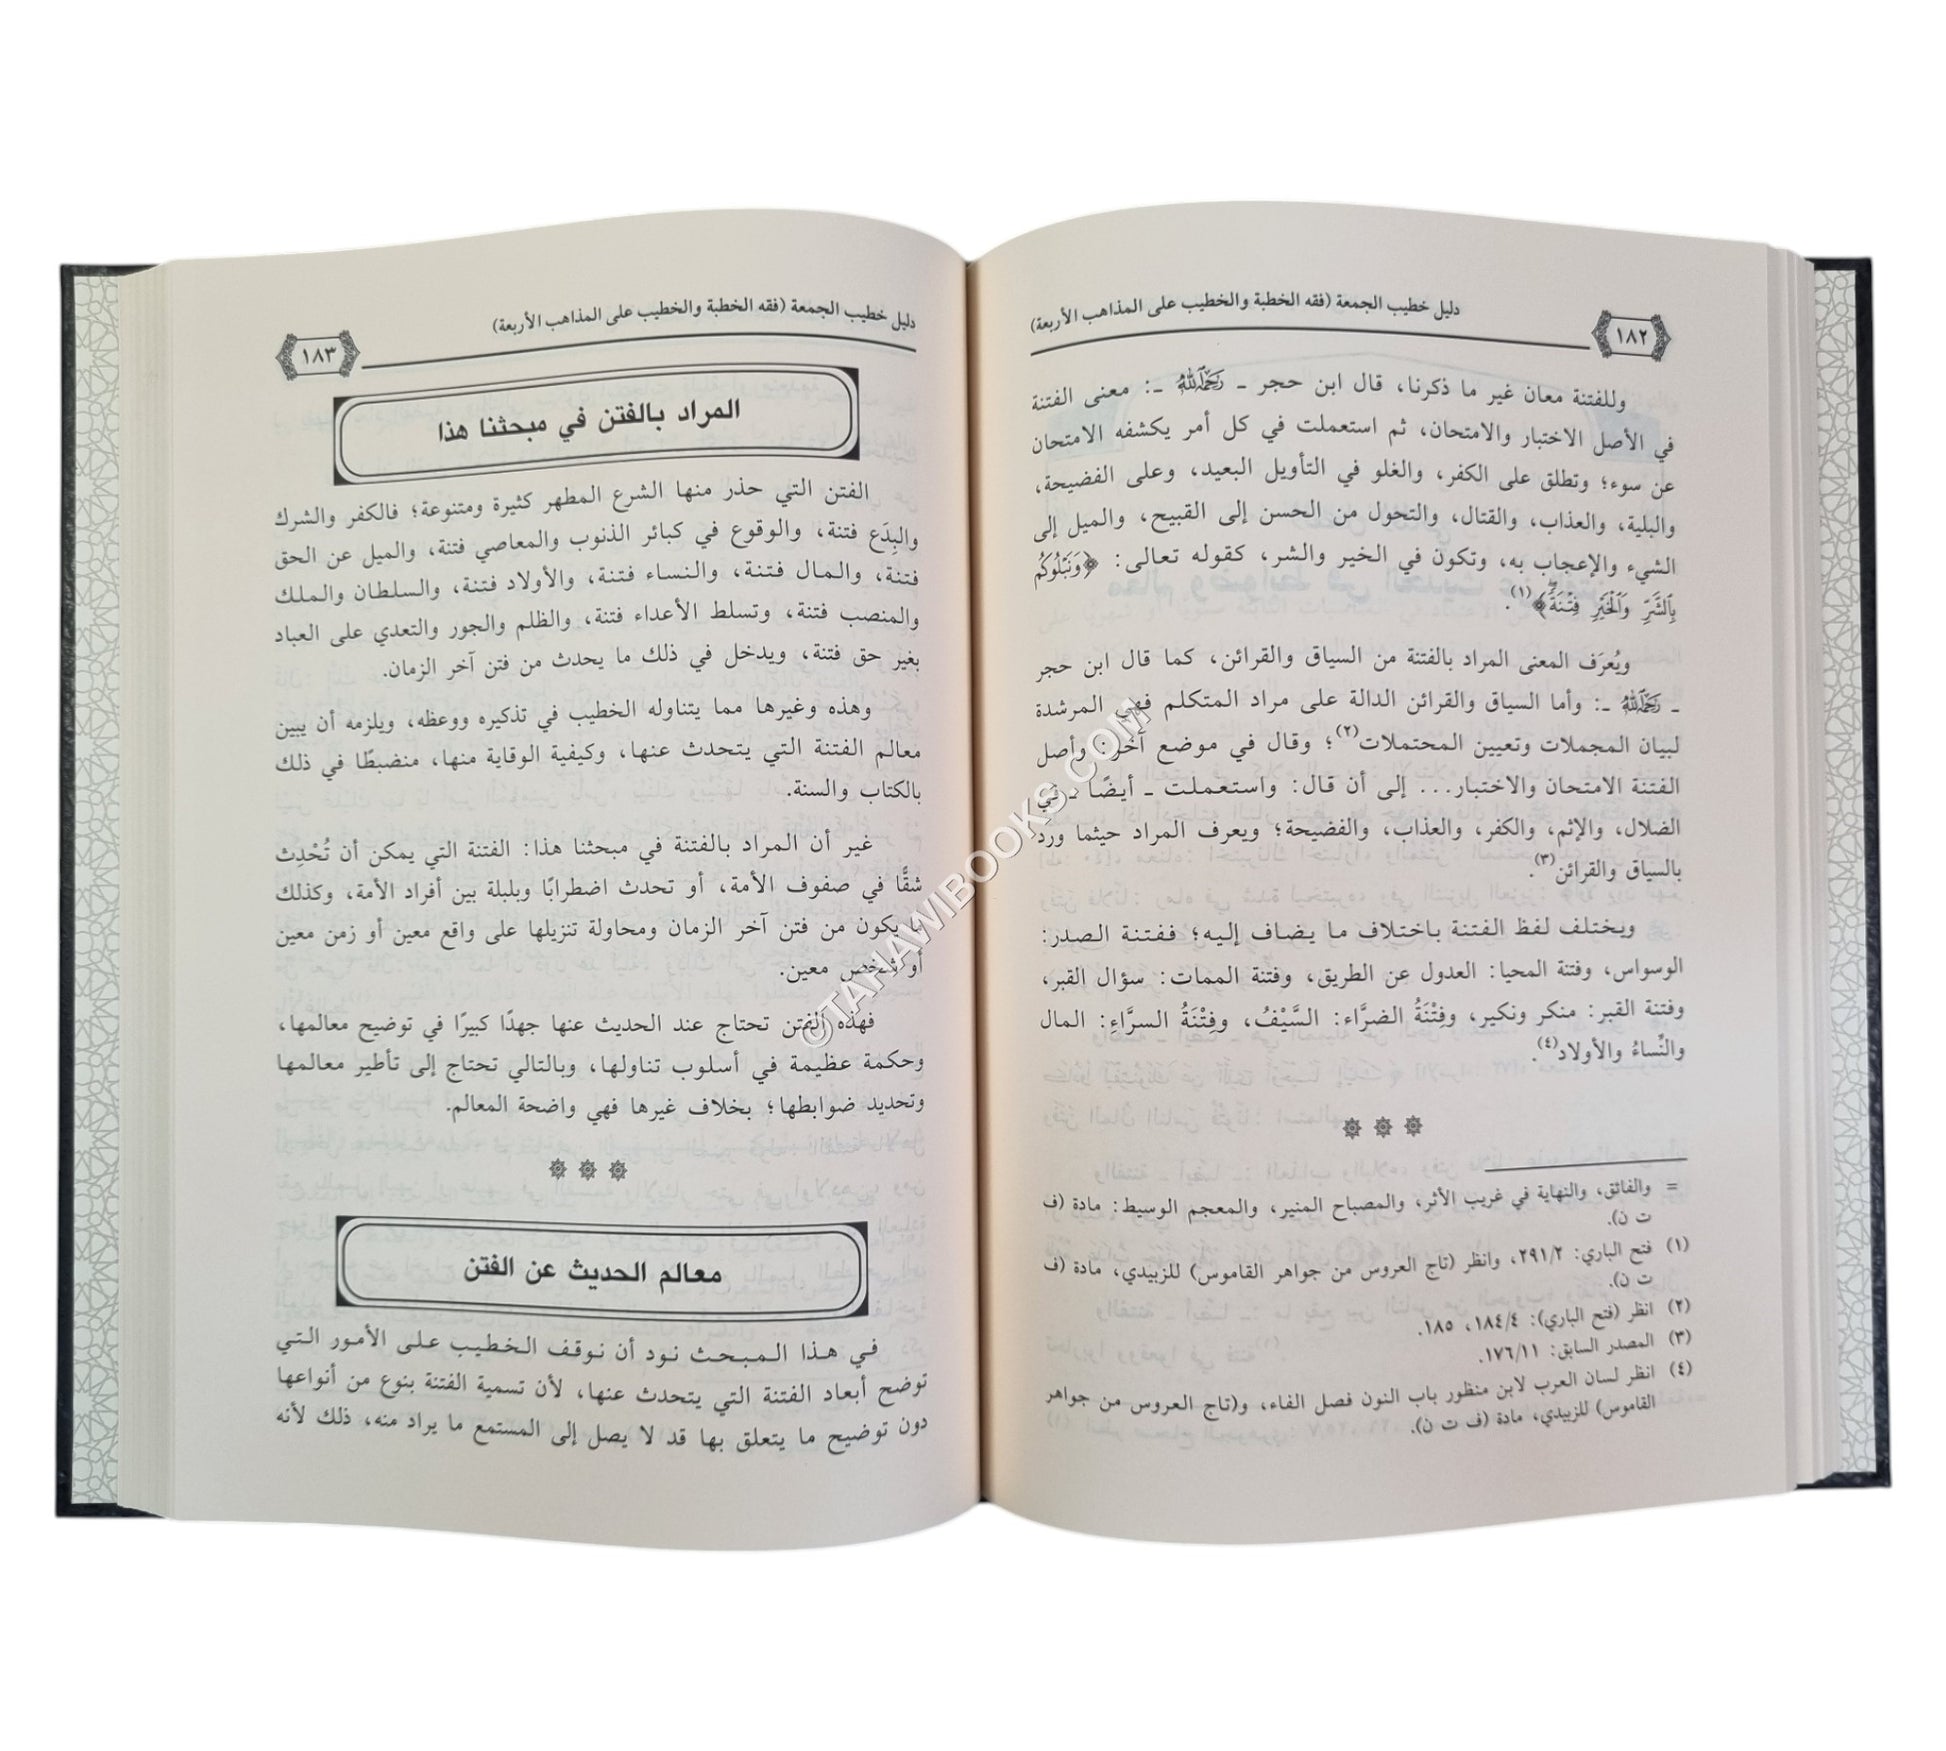 دليل خطيب الجمعة (فقه الخطبة والخطيب على المذاهب الأربعة)
١٨٢
وللفتنة معان غير ما ذكرنا، قال ابن حجر ـ رَحِمَهُ ٱللَّهُ ـ: معنى الفتنة
في الأصل الاختبار والامتحان، ثم استعملت في كل أمر يكشفه الامتحان
عن سوء؛ وتطلق على الكفر، والغلو في التأويل البعيد، وعلى الفضيحة،
والبلية، والعذاب، والقتال، والتحول من الحسن إلى القبيح، والميل إلى
الشيء والإعجاب به، وتكون في الخير والشر، كقوله تعالى: ﴿وَنَبْلُوكُم
بِٱلشَّرِّ وَٱلْخَيْرِ فِتْنَةً﴾(١).
ويُعرَف المعنى المراد بالفتنة من السياق والقرائن، كما قال ابن حجر
ـ رَحِمَهُ ٱللَّهُ ـ: وأما السياق والقرائن الدالة على مراد المتكلم فهي المرشدة
لبيان المجملات وتعيين المحتملات(٢)؛ وقال في موضع آخر: وأصل
الفتنة الامتحان والاختبار... إلى أن قال: واستعملت ـ أيضًا ـ في
الضلال، والإثم، والكفر، والعذاب، والفضيحة؛ ويعرف المراد حيثما ورد
بالسياق والقرائن(٣).
ويختلف لفظ الفتنة باختلاف ما يضاف إليه؛ ففتنة الصدر:
الوسواس، وفتنة المحيا: العدول عن الطريق، وفتنة الممات: سؤال القبر،
وفتنة القبر: منكر ونكير، وفِتْنَةُ الضرَّاء: السَّيْفُ، وفِتْنَةُ السرَّاءِ: المال
والنِّساءُ والأولاد(٤).
= والفائق، والنهاية في غريب الأثر، والمصباح المنير، والمعجم الوسيط: مادة (ف
ت ن).
(١) فتح الباري: ٢٩١/٢، وانظر (تاج العروس من جواهر القاموس) للزبيدي، مادة (ف
ت ن).
(٢) انظر (فتح الباري): ١٨٤/٤، ١٨٥.
(٣) المصدر السابق: ١٧٦/١١.
(٤) انظر لسان العرب لابن منظور باب النون فصل الفاء، و(تاج العروس من جواهر
القاموس) للزبيدي، مادة (ف ت ن).
دليل خطيب الجمعة (فقه الخطبة والخطيب على المذاهب الأربعة)
١٨٣
المراد بالفتن في مبحثنا هذا
الفتن التي حذر منها الشرع المطهر كثيرة ومتنوعة؛ فالكفر والشرك
والبِدَع فتنة، والوقوع في كبائر الذنوب والمعاصي فتنة، والميل عن الحق
فتنة، والمال فتنة، والنساء فتنة، والأولاد فتنة، والسلطان والملك
والمنصب فتنة، وتسلط الأعداء فتنة، والظلم والجور والتعدي على العباد
بغير حق فتنة، ويدخل في ذلك ما يحدث من فتن آخر الزمان.
وهذه وغيرها مما يتناوله الخطيب في تذكيره ووعظه، ويلزمه أن يبين
معالم الفتنة التي يتحدث عنها، وكيفية الوقاية منها، منضبطًا في ذلك
بالكتاب والسنة.
غير أن المراد بالفتنة في مبحثنا هذا: الفتنة التي يمكن أن تُحْدِث
شقًّا في صفوف الأمة، أو تحدث اضطرابًا وبلبلة بين أفراد الأمة، وكذلك
ما يكون من فتن آخر الزمان ومحاولة تنزيلها على واقع معين أو زمن معين
أو شخص معين.
فهذه الفتن تحتاج عند الحديث عنها جهدًا كبيرًا في توضيح معالمها،
وحكمة عظيمة في أسلوب تناولها، وبالتالي تحتاج إلى تأطير معالمها
وتحديد ضوابطها؛ بخلاف غيرها فهي واضحة المعالم.
معالم الحديث عن الفتن
في هذا المبحث نود أن نوقف الخطيب على الأمور التي
توضح أبعاد الفتنة التي يتحدث عنها، لأن تسمية الفتنة بنوع من أنواعها
دون توضيح ما يتعلق بها قد لا يصل إلى المستمع ما يراد منه، ذلك لأنه
©TAHAWIBOOKS.COM